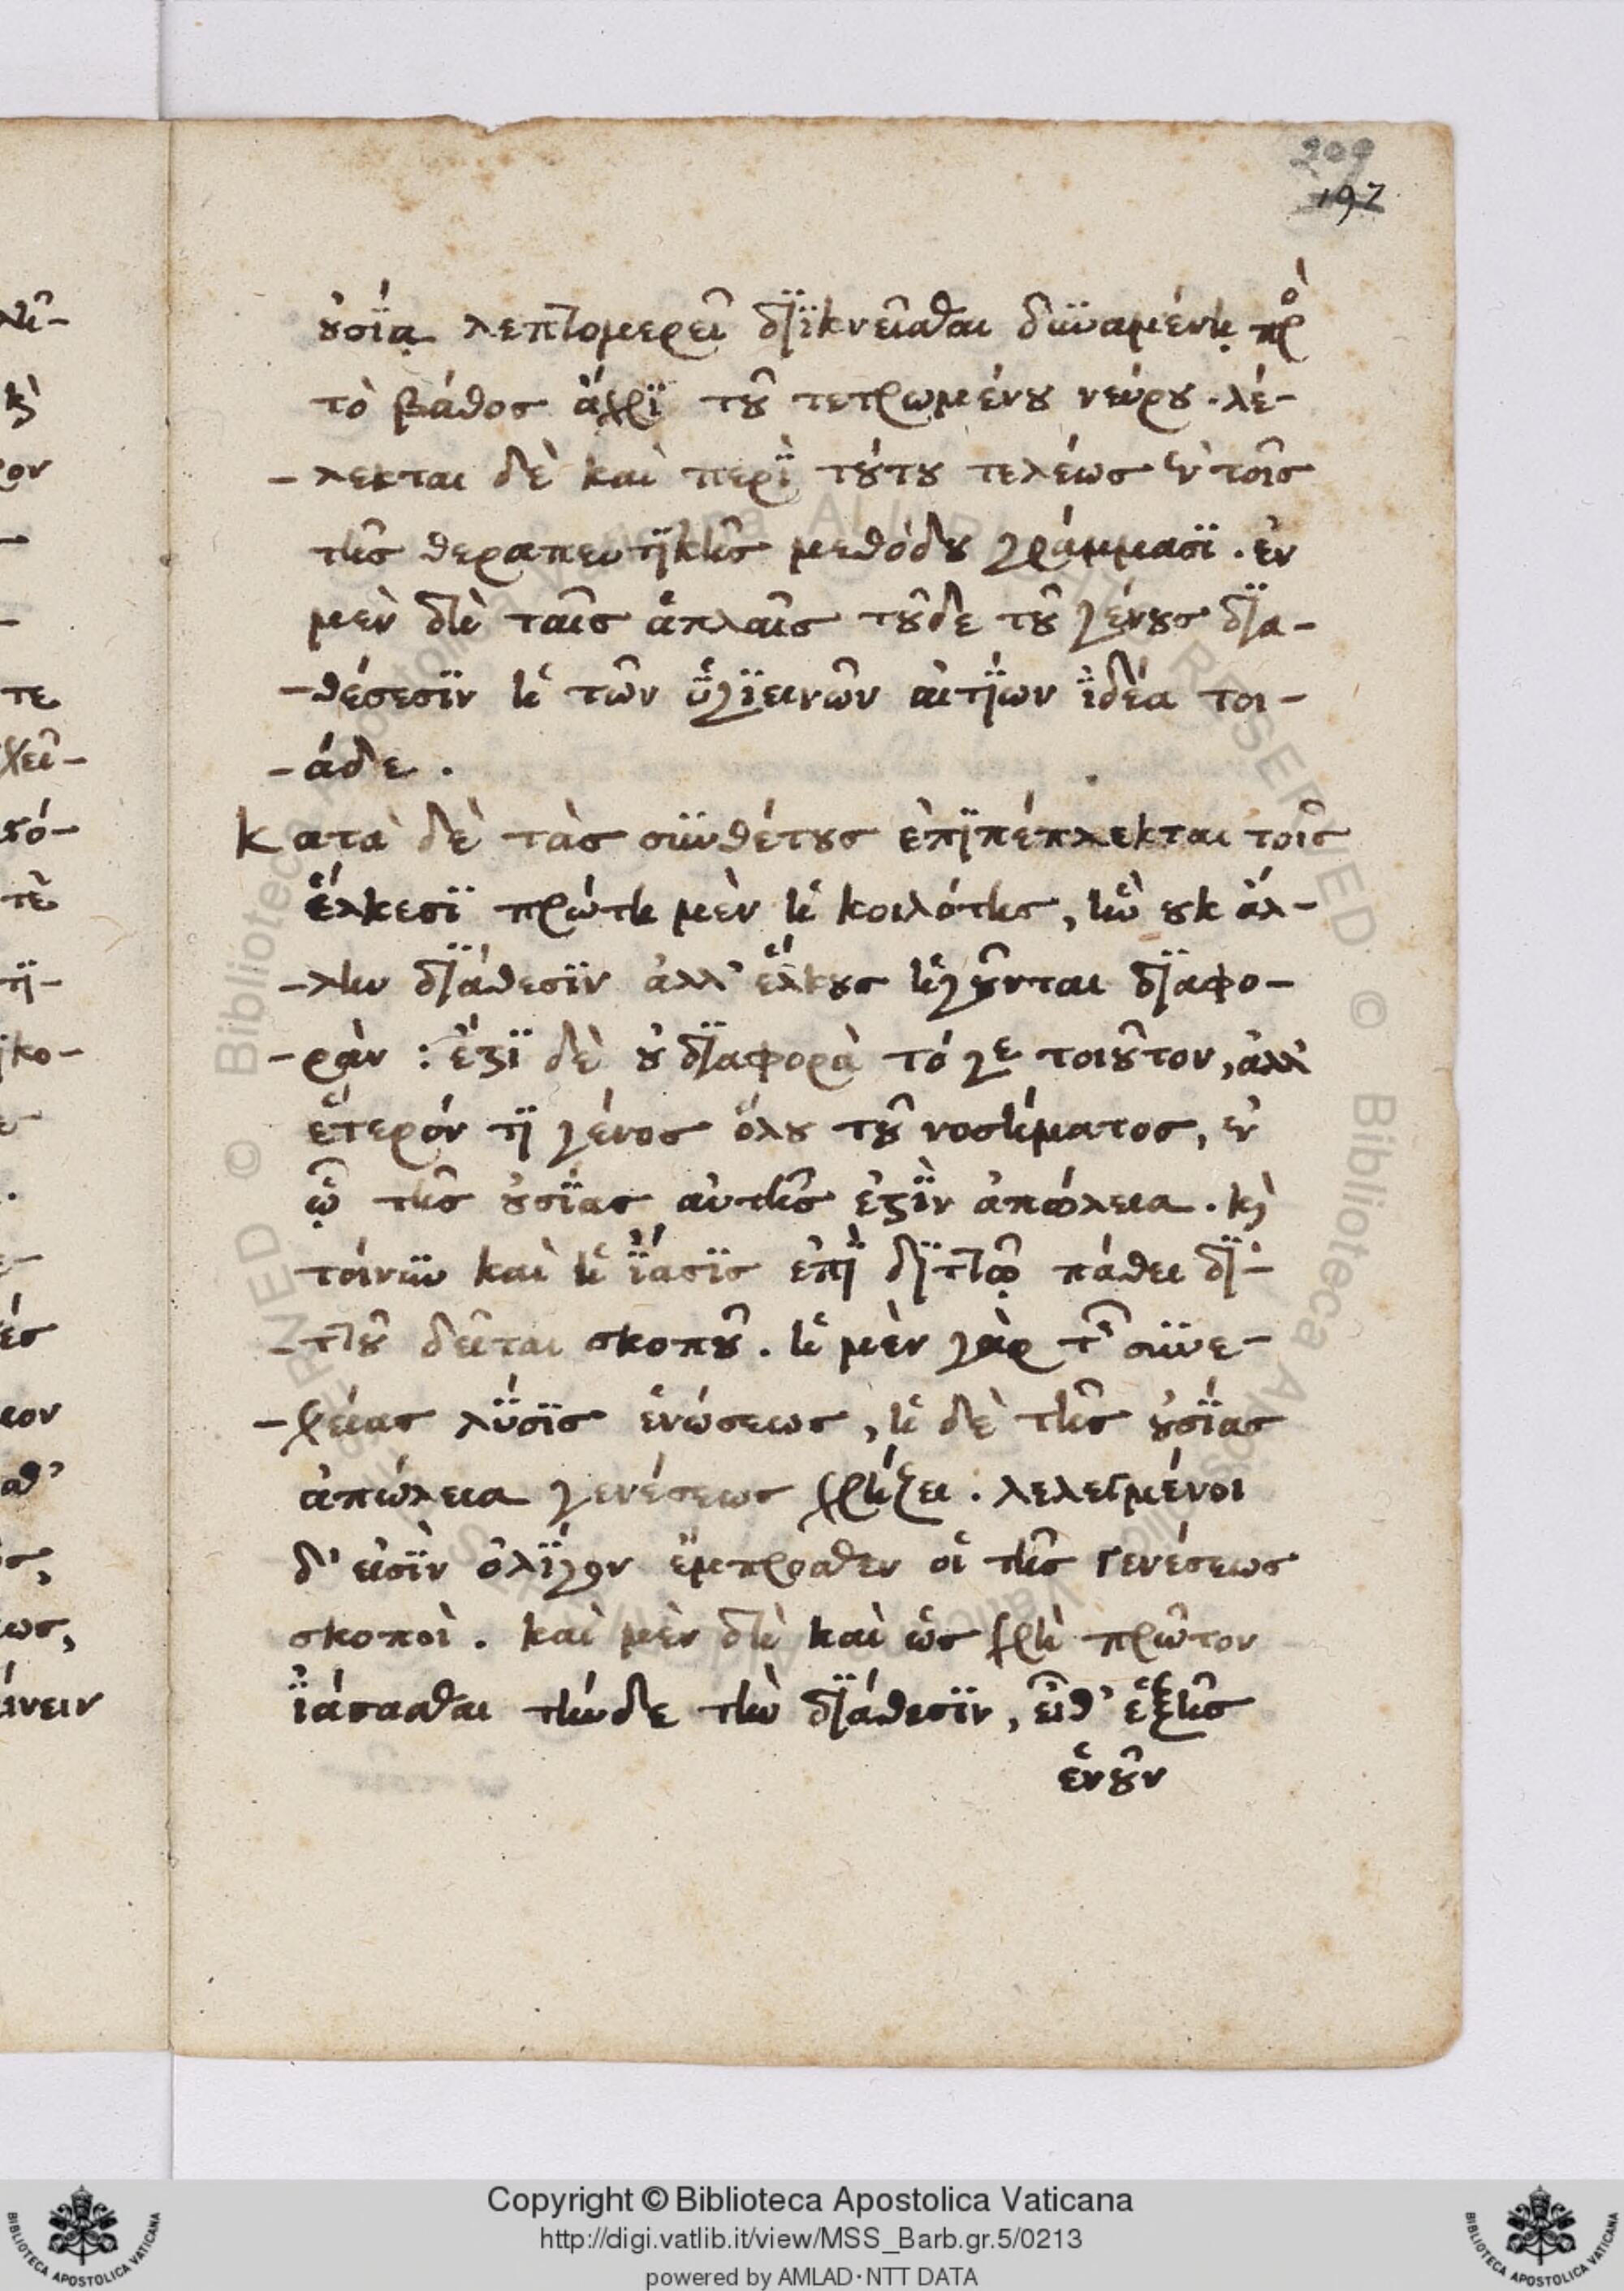 209
197
οὐσίᾳ λεπτομερεῖ διϊκνεῖσθαι δυναμένῃ πρὸ
τὸ βάθος ἄχρι τοῦ τετρωμένου νεύρου. λέ-
-λεκται δὲ καὶ περὶ τούτου τελέως ἐν τοῖς
τῆς θεραπευτικῆς μεθόδου γράμμασι. ἐν
μὲν δὴ ταῖς ἁπλαῖς τοῦδε τοῦ γένους δια-
-θέσεσιν ἡ τῶν ὑγιεινῶν αἰτίων ἰδέα τοι-
-άδε.
Κατὰ δὲ τὰς συνθέτους ἐπιπέπλεκται τοῖς
ἕλκεσι πρώτη μὲν ἡ κοιλότης, ἣν οὐκ ἄλ-
-λην διάθεσιν ἀλλ' ἕλκους ἡγοῦνται διαφο-
-ράν: ἔστι δὲ οὐ διαφορὰ τό γε τοιοῦτον, ἀλλ'
ἕτερόν τι γένος ὅλου τοῦ νοσήματος, ἐν
ᾧ τῆς οὐσίας αὐτῆς ἐστὶν ἀπώλεια. κỳ
τοίνυν καὶ ἡ ἴασις ἐπὶ διττῷ πάθει δι-
-ττοῦ δεῖται σκοποῦ. ἡ μὲν γὰρ τῆς συνε-
-χείας λύσις ἑνώσεως, ἡ δὲ τῆς οὐσίας
ἀπώλεια γενέσεως χρῄζει. λελεγμένοι
δ' εἰσὶν ὀλίγον ἔμπροσθεν οἱ τῆς γενέσεως
σκοποὶ. καὶ μὲν δὴ καὶ ὡς χρὴ πρῶτον
ἰάσασθαι τήνδε τὴν διάθεσιν, εἶθ' ἑξῆς
ἑνοῦν
Copyright © Biblioteca Apostolica Vaticana
http://digi.vatlib.it/view/MSS_Barb.gr.5/0213
powered by AMLAD·NTT DATA